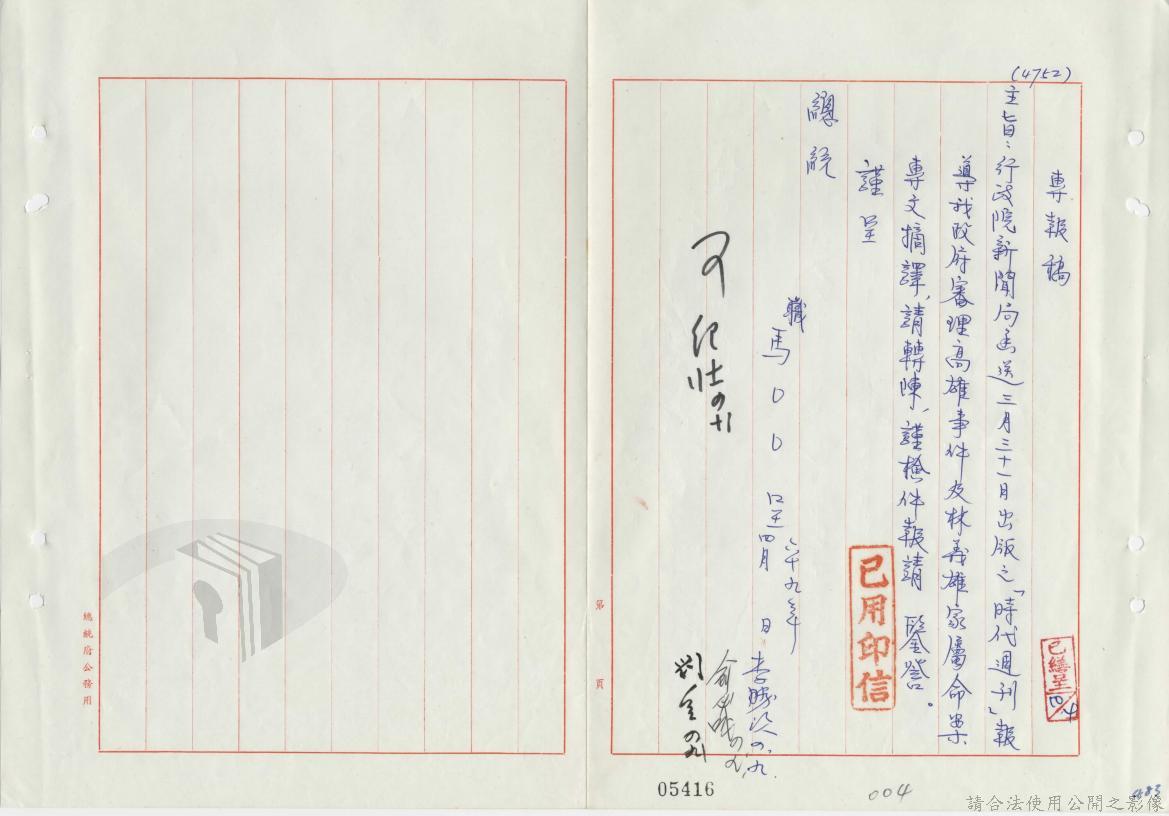 (4752)
專報稿
主旨:行政院新聞局函送三月三十一日出版之「時代週刊」報
導我政府審理高雄事件及林義雄家屬命案
專文摘譯,請轉陳,謹檢件報請 鑒詧。
謹呈
總統
職馬〇〇 呈
六十九年
四月 日
可
已用印信
已繕呈
第 頁
總統府公務用
05416
004
請合法使用公開之影像